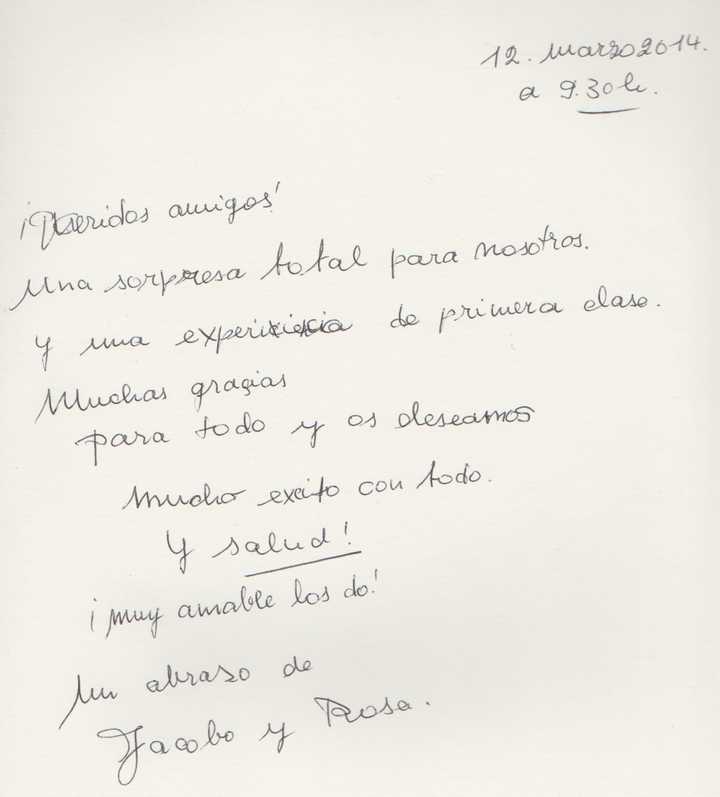 12. marzo 2014.
a 9.30 h.
¡Queridos amigos!
Una sorpresa total para nosotros.
Y una experiencia de primera clase.
Muchas gracias
para todo y os deseamos
mucho exeito con todo.
Y salud!
¡muy amable los do!
Un abrazo de
Jacobo y Rosa.